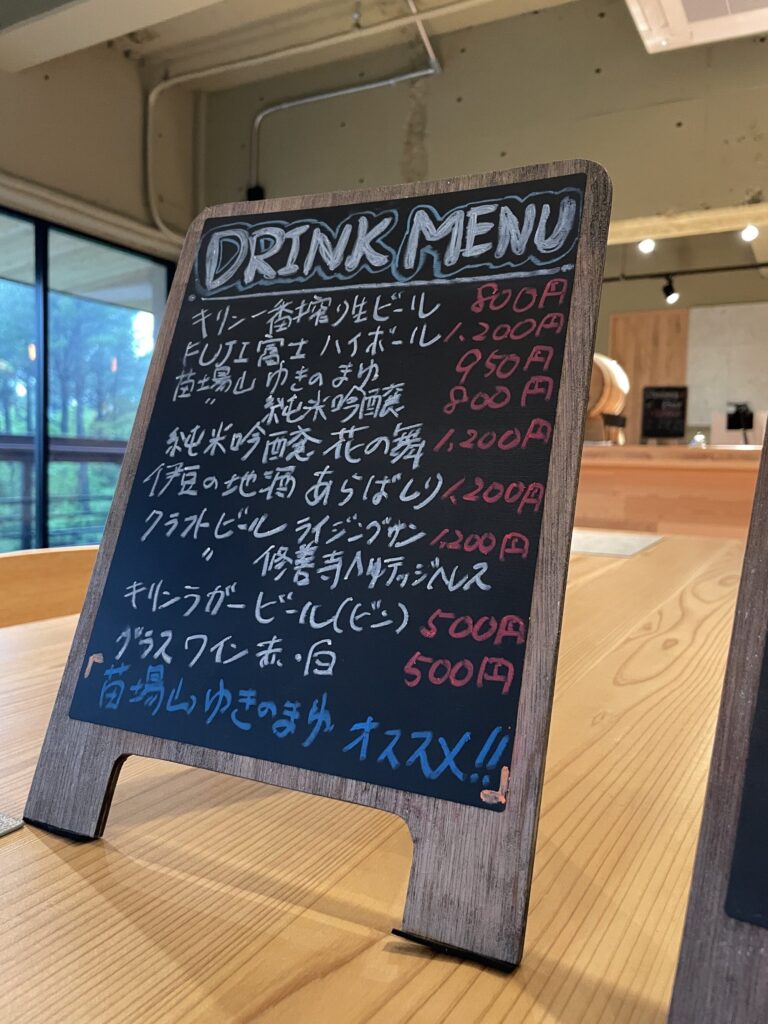 DRINK MENU
キリン一番搾り生ビール 800円
FUJI富士 ハイボール 1,200円
苗場山 ゆきのまゆ 950円
〃 純米吟醸 800円
純米吟醸 花の舞 1,200円
伊豆の地酒 あらばしり 1,200円
クラフトビール ライジングサン 1,200円
〃 修善寺ヘリテッジヘレス
キリンラガービール(ビン) 500円
グラスワイン 赤・白 500円
「苗場山ゆきのまゆ オススメ!!」